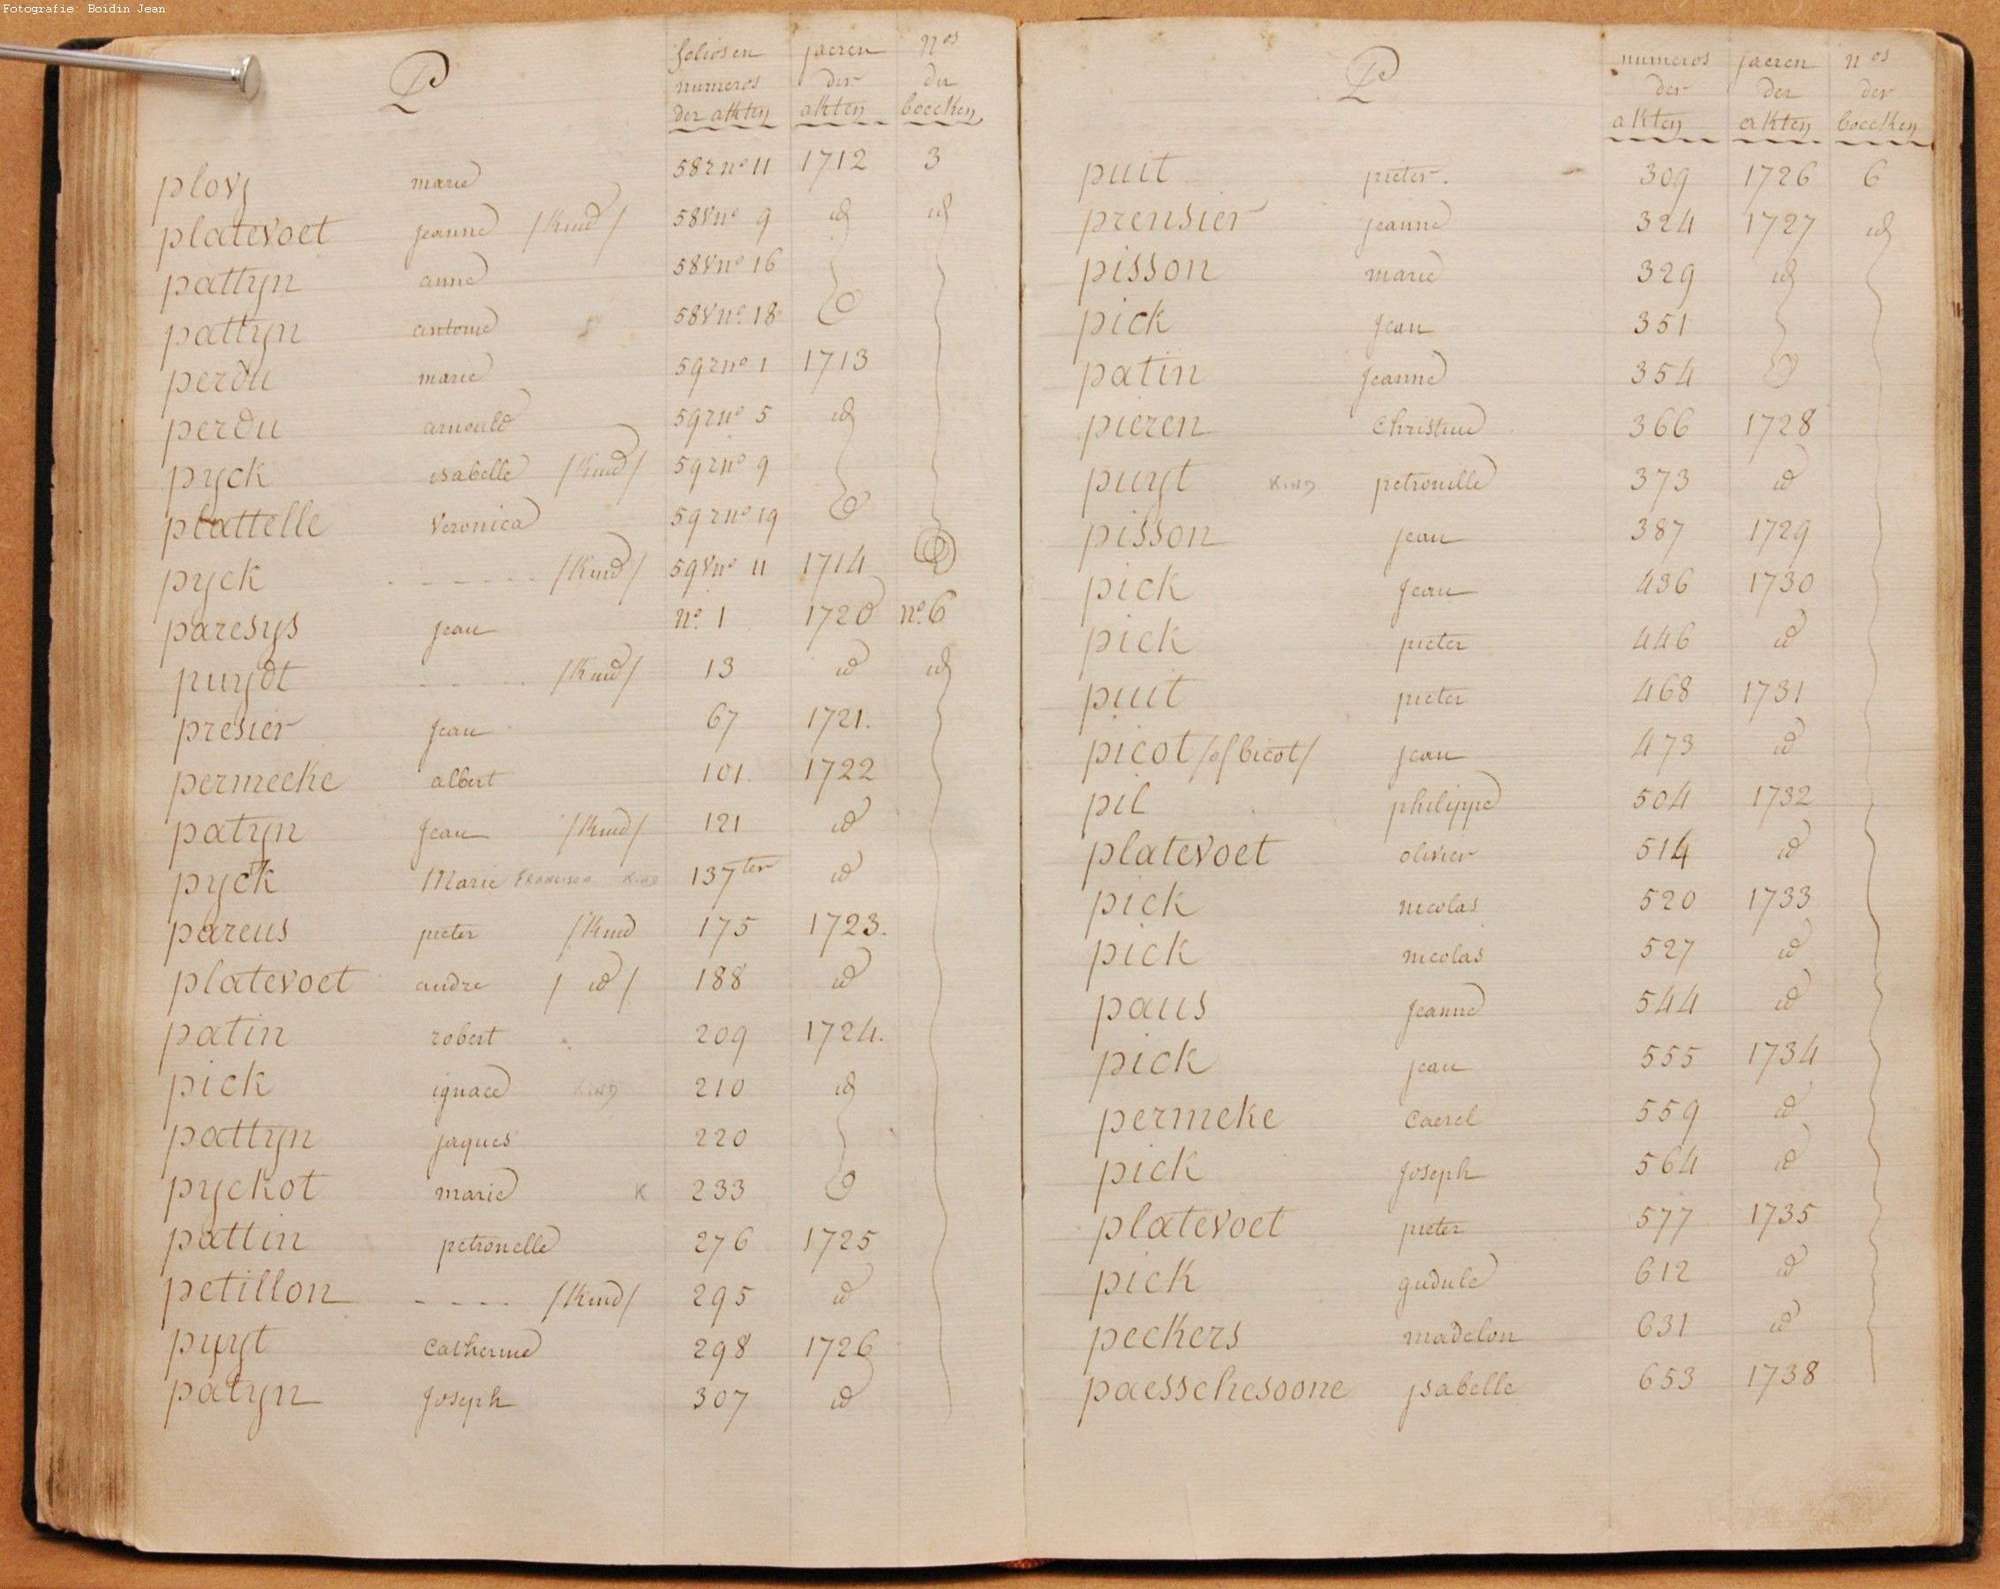 Fotografie: Boidin Jean
P
folios en numeros der akten
jaeren der akten
nos der boecken
ploij marie 58 r no 11 1712 3
platevoet jeanne /kind/ 58 v no 9 id id
pattijn anne 58 v no 16
pattijn antoine 58 v no 18
perdu marie 59 r no 1 1713
perdu arnould 59 r no 5 id
pyck isabelle /kind/ 59 r no 9
plattelle veronica 59 r no 19
pyck - - - - - - /kind/ 59 v no 11 1714
paresys jean no 1 1720 no 6
puydt - - - - - /kind/ 13 id id
presier jean 67 1721.
permecke albert 101. 1722
patyn jean /kind/ 121 id
pyck Marie Francisca kind 137 ter id
pareus pieter /kind 175 1723.
platevoet andre / id / 188 id
patin robert 209 1724.
pick ignace kind 210 id
pattyn jaques 220
pyckot marie K 233
pattin petronelle 276 1725
petillon - - - - /kind/ 295 id
puyt catherine 298 1726
patyn joseph 307 id
P
numeros der akten
jaeren der akten
nos der boecken
puit pieter. 309 1726 6
prensier jeanne 324 1727 id
pisson marie 329 id
pick jean 351
patin jeanne 354
pieren christine 366 1728
puyt kind petronelle 373 id
pisson jean 387 1729
pick jean 436 1730
pick pieter 446 id
puit pieter 468 1731
picot /of bicot/ jean 473 id
pil philippe 504 1732
platevoet olivier 514 id
pick nicolas 520 1733
pick nicolas 527 id
paus jeanne 544 id
pick jean 555 1734
permeke caerel 559 id
pick joseph 564 id
platevoet pieter 577 1735
pick gudule 612 id
peckers madelon 631 id
paesschesoone ysabelle 653 1738